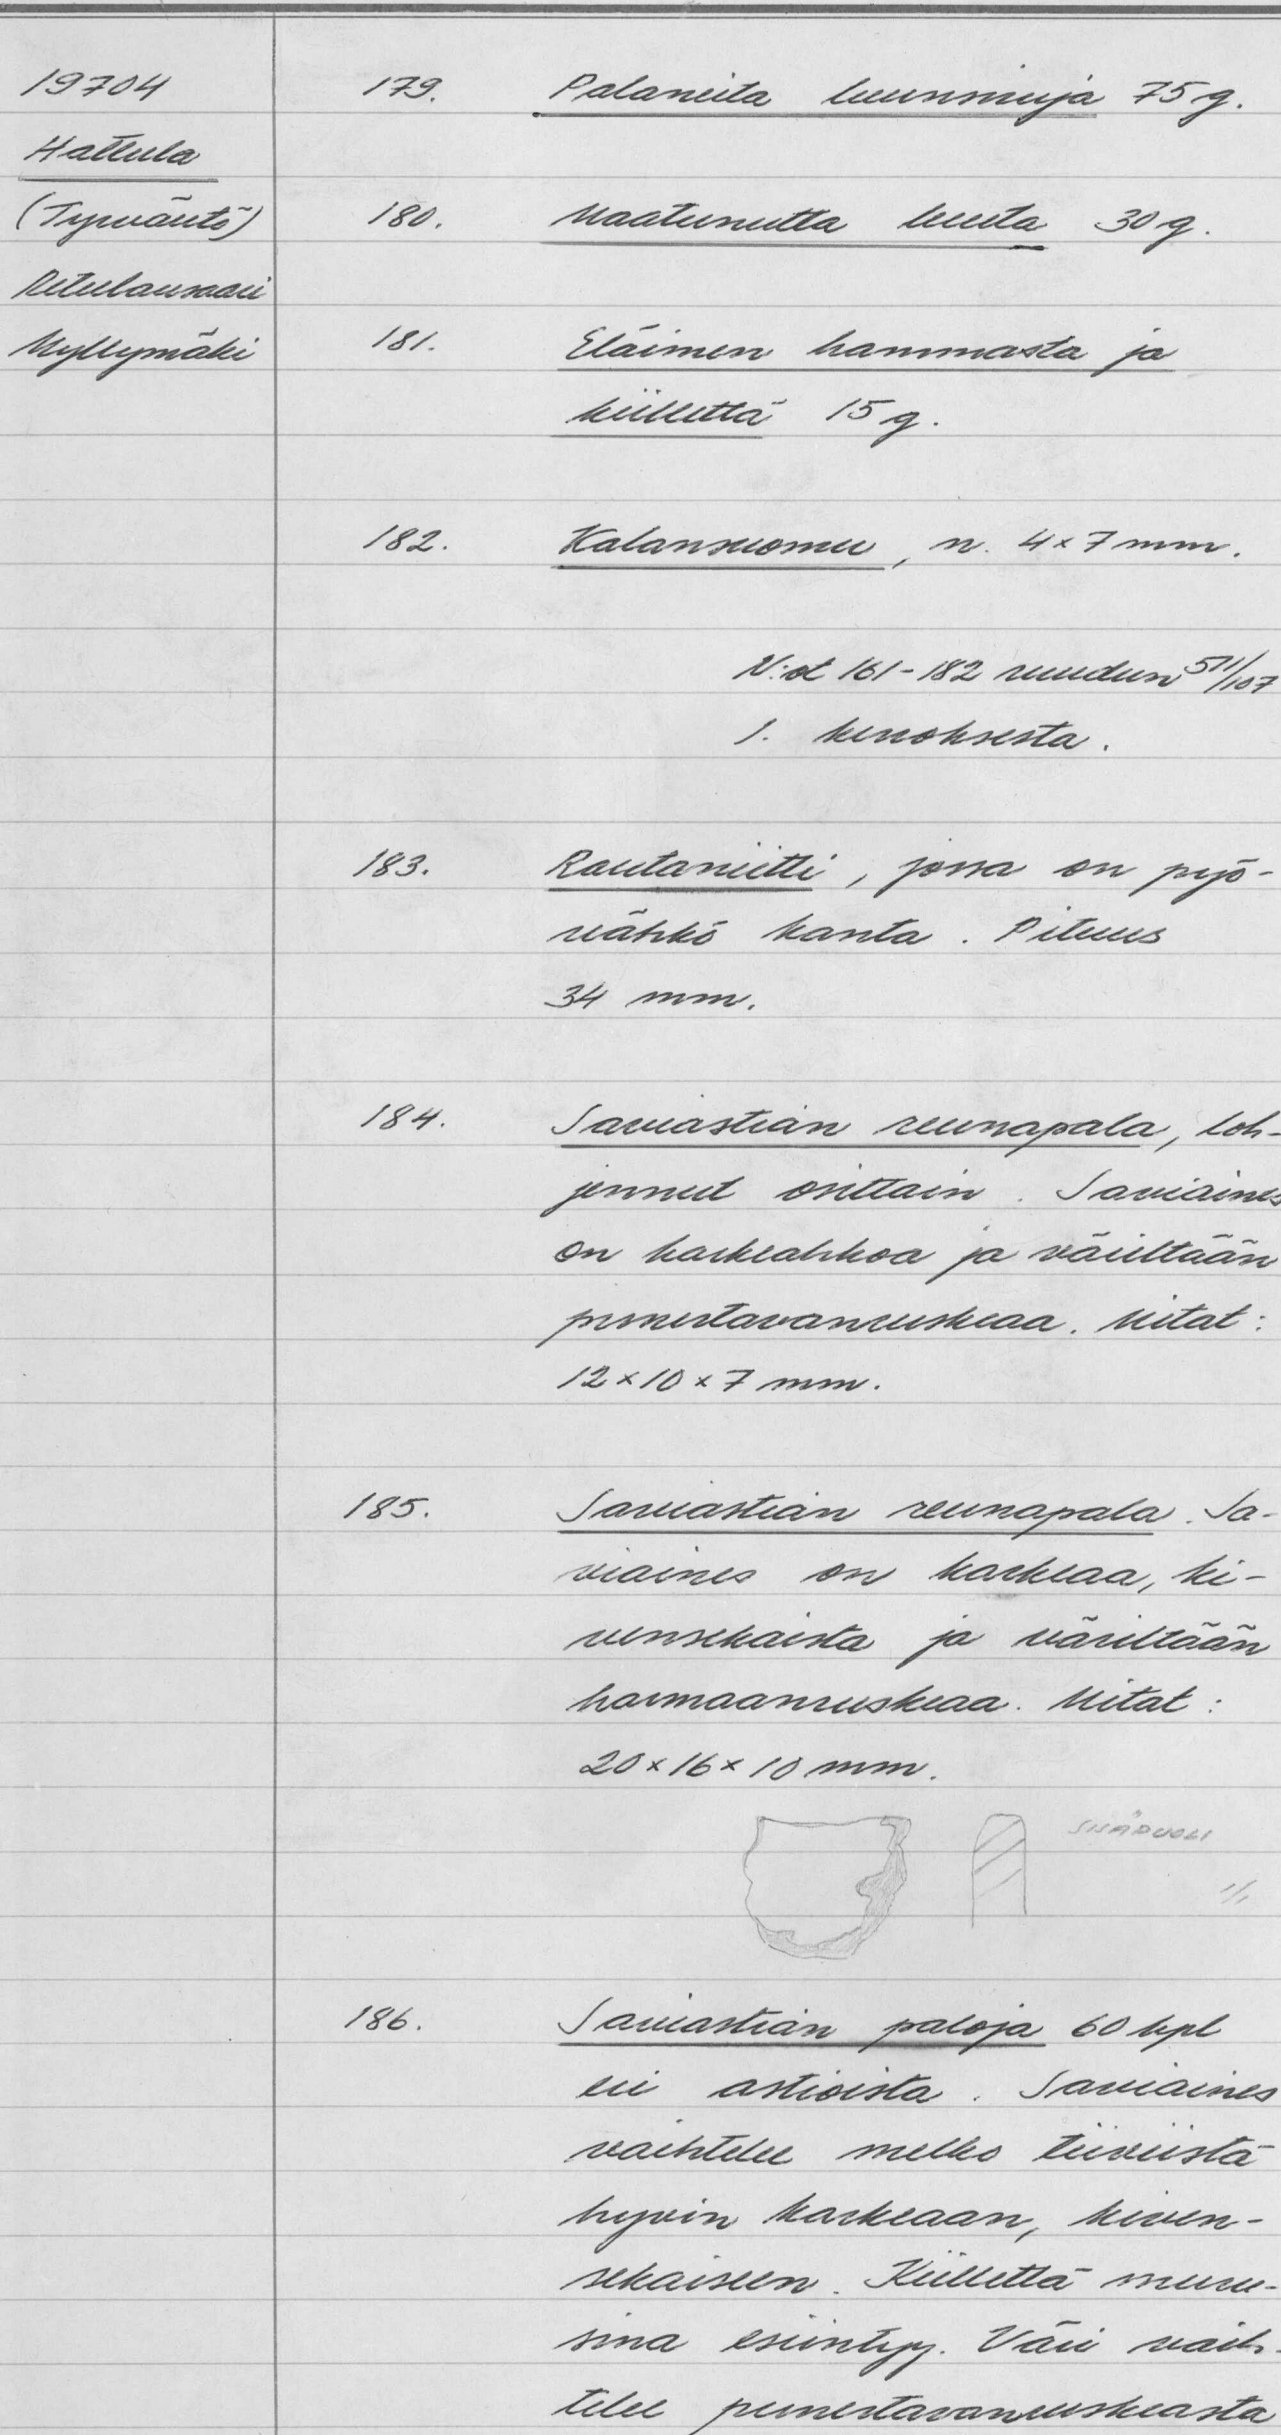 19704
Hattula
(Tyrväntö)
Retulansaari
Myllymäki
179. Palaneita luunsiruja 75 g.
180. Maatunutta luuta 30 g.
181. Eläimen hammasta ja
kiillettä 15 g.
182. Kalansuomu, n. 4 x 7 mm.
N:ot 161-182 ruudun 511/107
1. kerroksesta.
183. Rautaniitti, jossa on pyö-
reähkö kanta. Pituus
34 mm.
184. Saviastian reunapala, loh-
jennut osittain. Saviaines
on karkeahkoa ja väriltään
punertavanruskeaa. Mitat:
12 x 10 x 7 mm.
185. Saviastian reunapala. Sa-
viaines on karkeaa, ki-
vensekaista ja väriltään
harmaanruskeaa. Mitat:
20 x 16 x 10 mm.
SISÄPUOLI
1/1
186. Saviastian paloja 60 kpl
eri astioista. Saviaines
vaihtelee melko tiiviistä
hyvin karkeaan, kiven-
sekaiseen. Kiillettä muru-
sina esiintyy. Väri vaih-
telee punertavanruskeasta